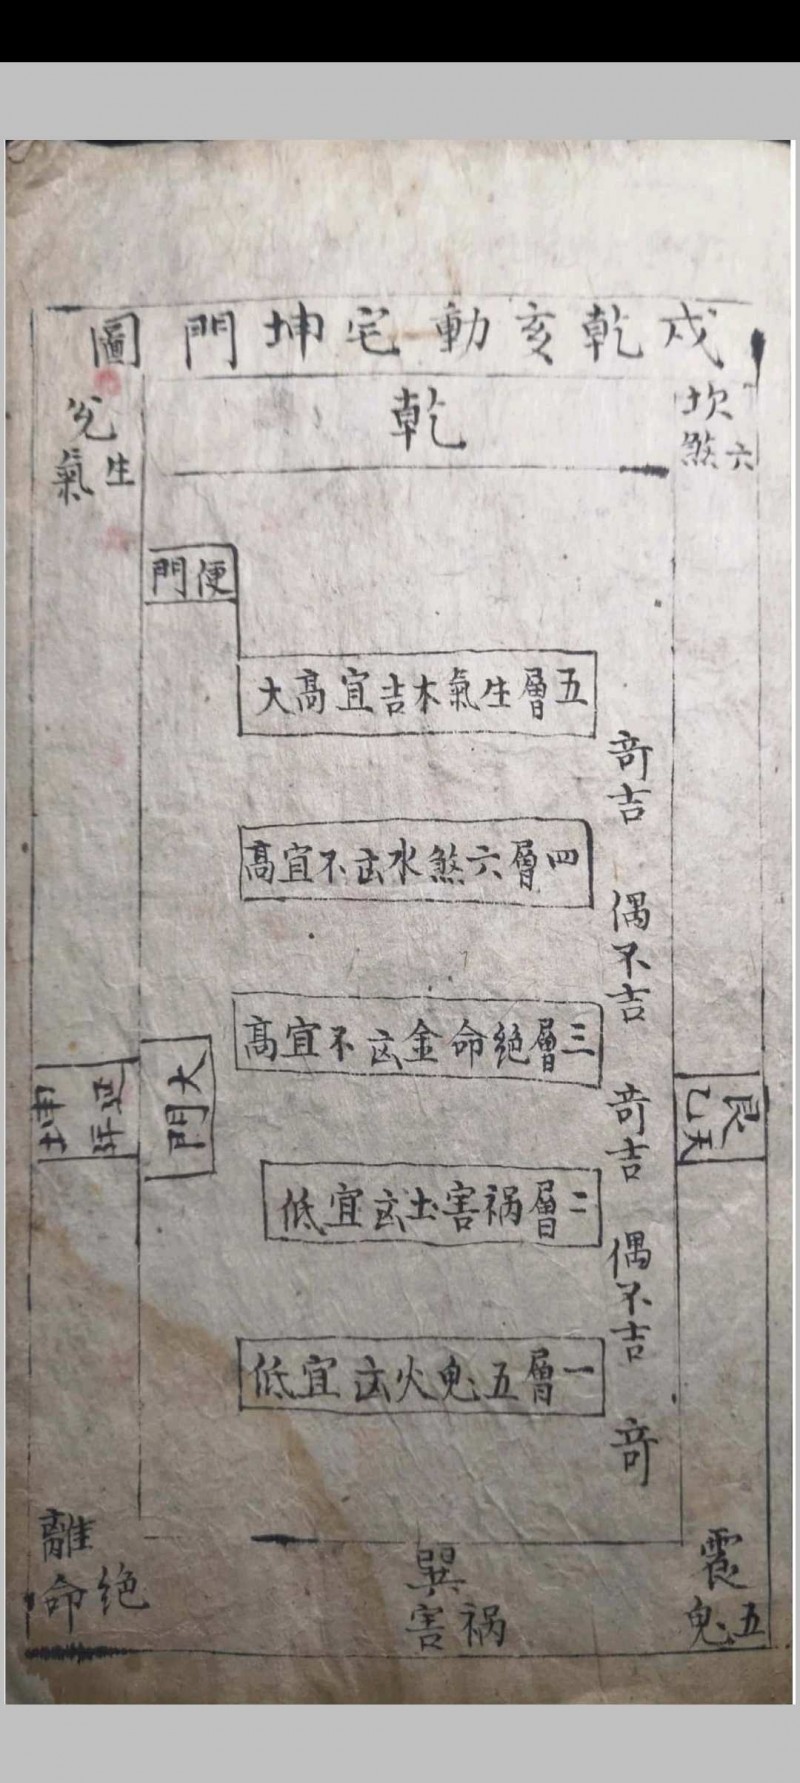 戌乾亥動宅坤門圖
坎
六煞
乾
兌
生氣
便門
五層生氣木吉宜高大
奇吉
四層六煞水凶不宜高
偶不吉
三層絶命金凶不宜高
奇吉
大門
坤
延年
艮
天乙
二層祸害土凶宜低
偶不吉
一層五鬼火凶宜低
奇
震
五鬼
巽
祸害
離
絶命